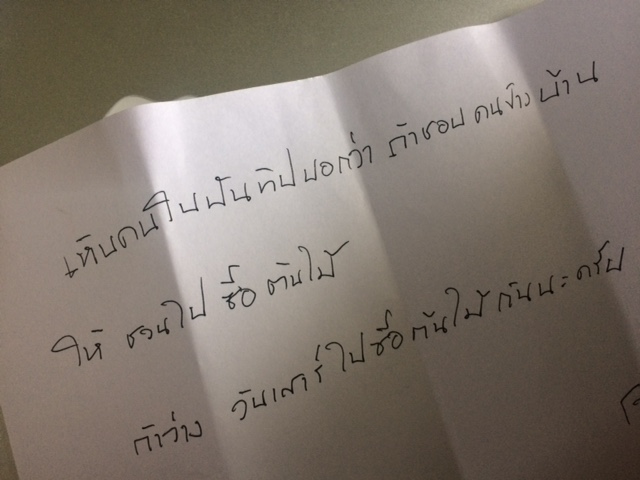 เห็นคนในพันทิปบอกว่า ถ้าชอบคนข้างบ้าน
ให้ ชวนไป ซื้อ ต้นไม้
ถ้าว่าง วันเสาร์ ไปซื้อต้นไม้กันนะครับ